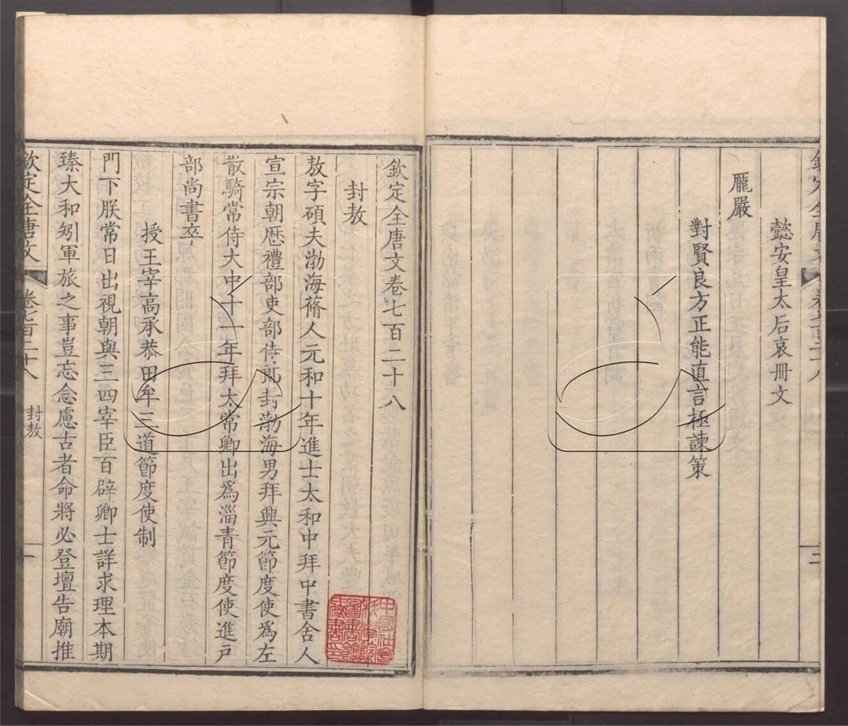 懿安皇太后哀冊文
龎嚴
對賢良方正能直言極諫策
欽定全唐文卷七百二十八
封敖
敖字碩夫渤海蓨人元和十年進士太和中拜中書舍人
宣宗朝歴禮部吏部侍郎封渤海男拜興元節度使爲左
散騎常侍大中十一年拜太常卿出爲淄青節度使進戸
部尚書卒
授王宰高承恭田牟三道節度使制
門下朕常日出視朝與三四宰臣百辟卿士詳求理本期
臻大和矧軍旅之事豈忘念慮古者命將必登壇告廟推
欽定全唐文 卷七百二十八 封敖 一